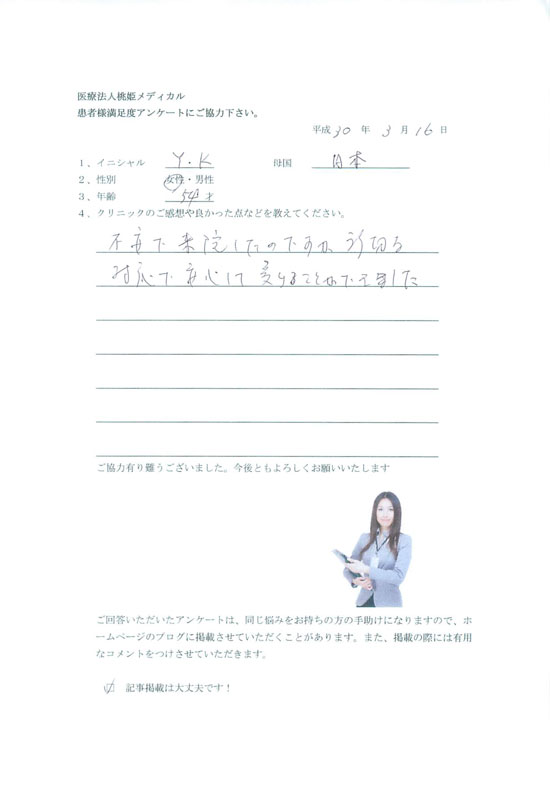 医療法人桃姫メディカル
患者様満足度アンケートにご協力下さい。
平成 30 年 3 月 16 日
1、イニシャル Y・K 母国 日本
2、性別 女性・男性
3、年齢 才
4、クリニックのご感想や良かった点などを教えてください。
不安で来院したのですが
対応で安心して受けることができました
ご協力有り難うございました。今後ともよろしくお願いいたします
ご回答いただいたアンケートは、同じ悩みをお持ちの方の手助けになりますので、ホ
ームページのブログに掲載させていただくことがあります。また、掲載の際には有用
なコメントをつけさせていただきます。
記事掲載は大丈夫です！